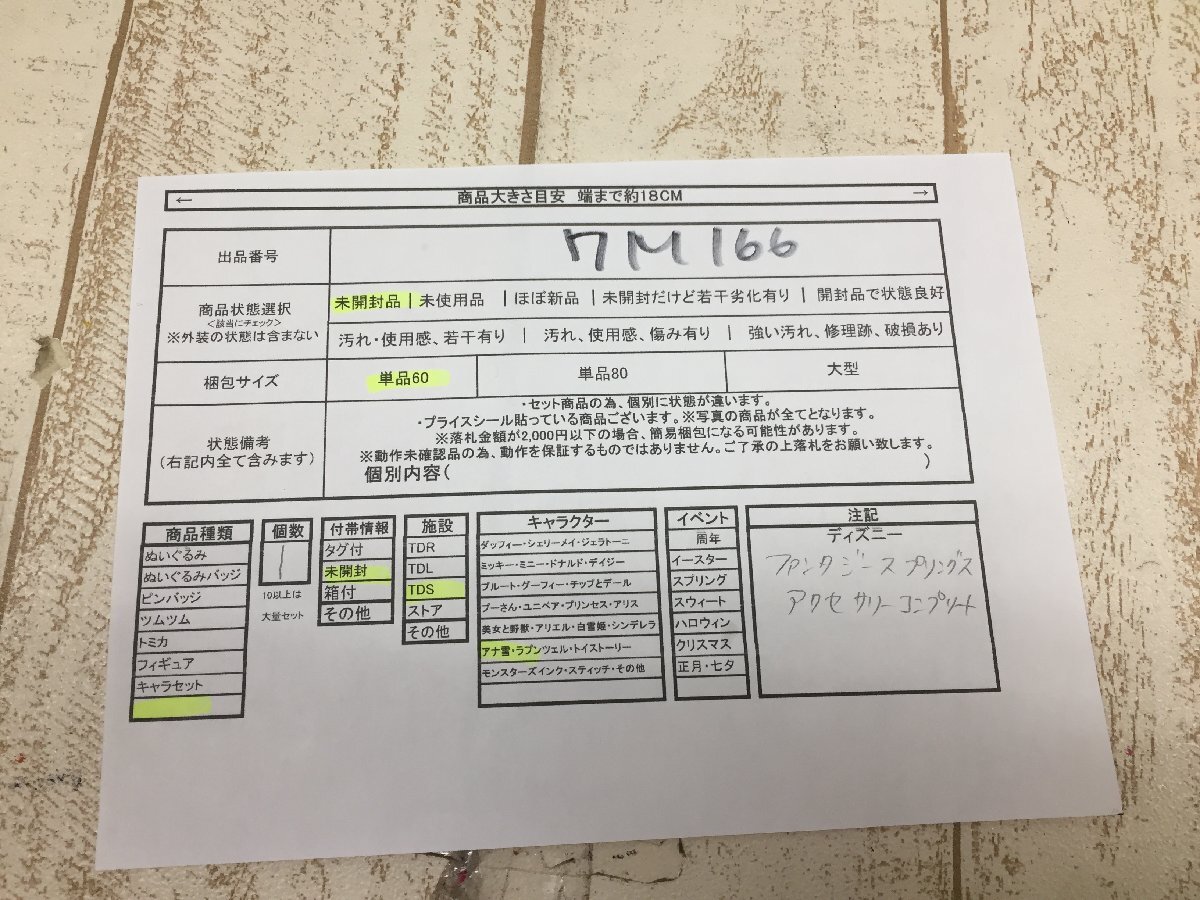 ← 商品大きさ目安 端まで約18CM →
出品番号 7M166
商品状態選択
<該当にチェック>
※外装の状態は含まない
未開封品 | 未使用品 | ほぼ新品 | 未開封だけど若干劣化有り | 開封品で状態良好
汚れ・使用感、若干有り | 汚れ、使用感、傷み有り | 強い汚れ、修理跡、破損あり
梱包サイズ 単品60 単品80 大型
状態備考
(右記内全て含みます)
・セット商品の為、個別に状態が違います。
・プライスシール貼っている商品ございます。※写真の商品が全てとなります。
※落札金額が2,000円以下の場合、簡易梱包になる可能性があります。
※動作未確認品の為、動作を保証するものではありません。ご了承の上落札をお願い致します。
個別内容( )
商品種類
ぬいぐるみ
ぬいぐるみバッジ
ピンバッジ
ツムツム
トミカ
フィギュア
キャラセット
個数
1
10以上は
大量セット
付帯情報
タグ付
未開封
箱付
その他
施設
TDR
TDL
TDS
ストア
その他
キャラクター
ダッフィー・シェリーメイ・ジェラトーニ
ミッキー・ミニー・ドナルド・デイジー
プルート・グーフィー・チップとデール
プーさん・ユニベア・プリンセス・アリス
美女と野獣・アリエル・白雪姫・シンデレラ
アナ雪・ラプンツェル・トイストーリー
モンスターズインク・スティッチ・その他
イベント
周年
イースター
スプリング
スウィート
ハロウィン
クリスマス
正月・七夕
注記
ディズニー
ファンタジースプリングス
アクセサリーコンプリート